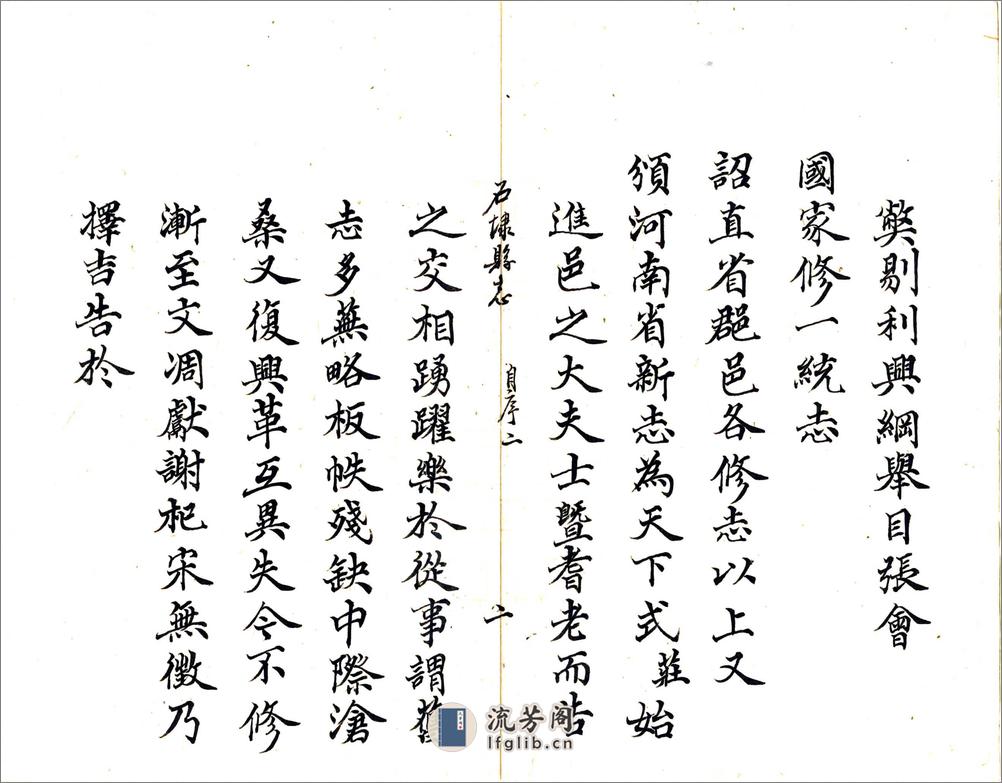 弊剔利興綱舉目張會
國家修一統志
詔直省郡邑各修志以上又
頒河南省新志為天下式莊始
進邑之大夫士暨耆老而告
石埭縣志 自序二 二
之交相踴躍樂於從事謂舊
志多蕪略板帙殘缺中際滄
桑又復興革互異失今不修
漸至文凋獻謝杞宋無徵乃
擇吉告於
流芳阁
lfglib.cn